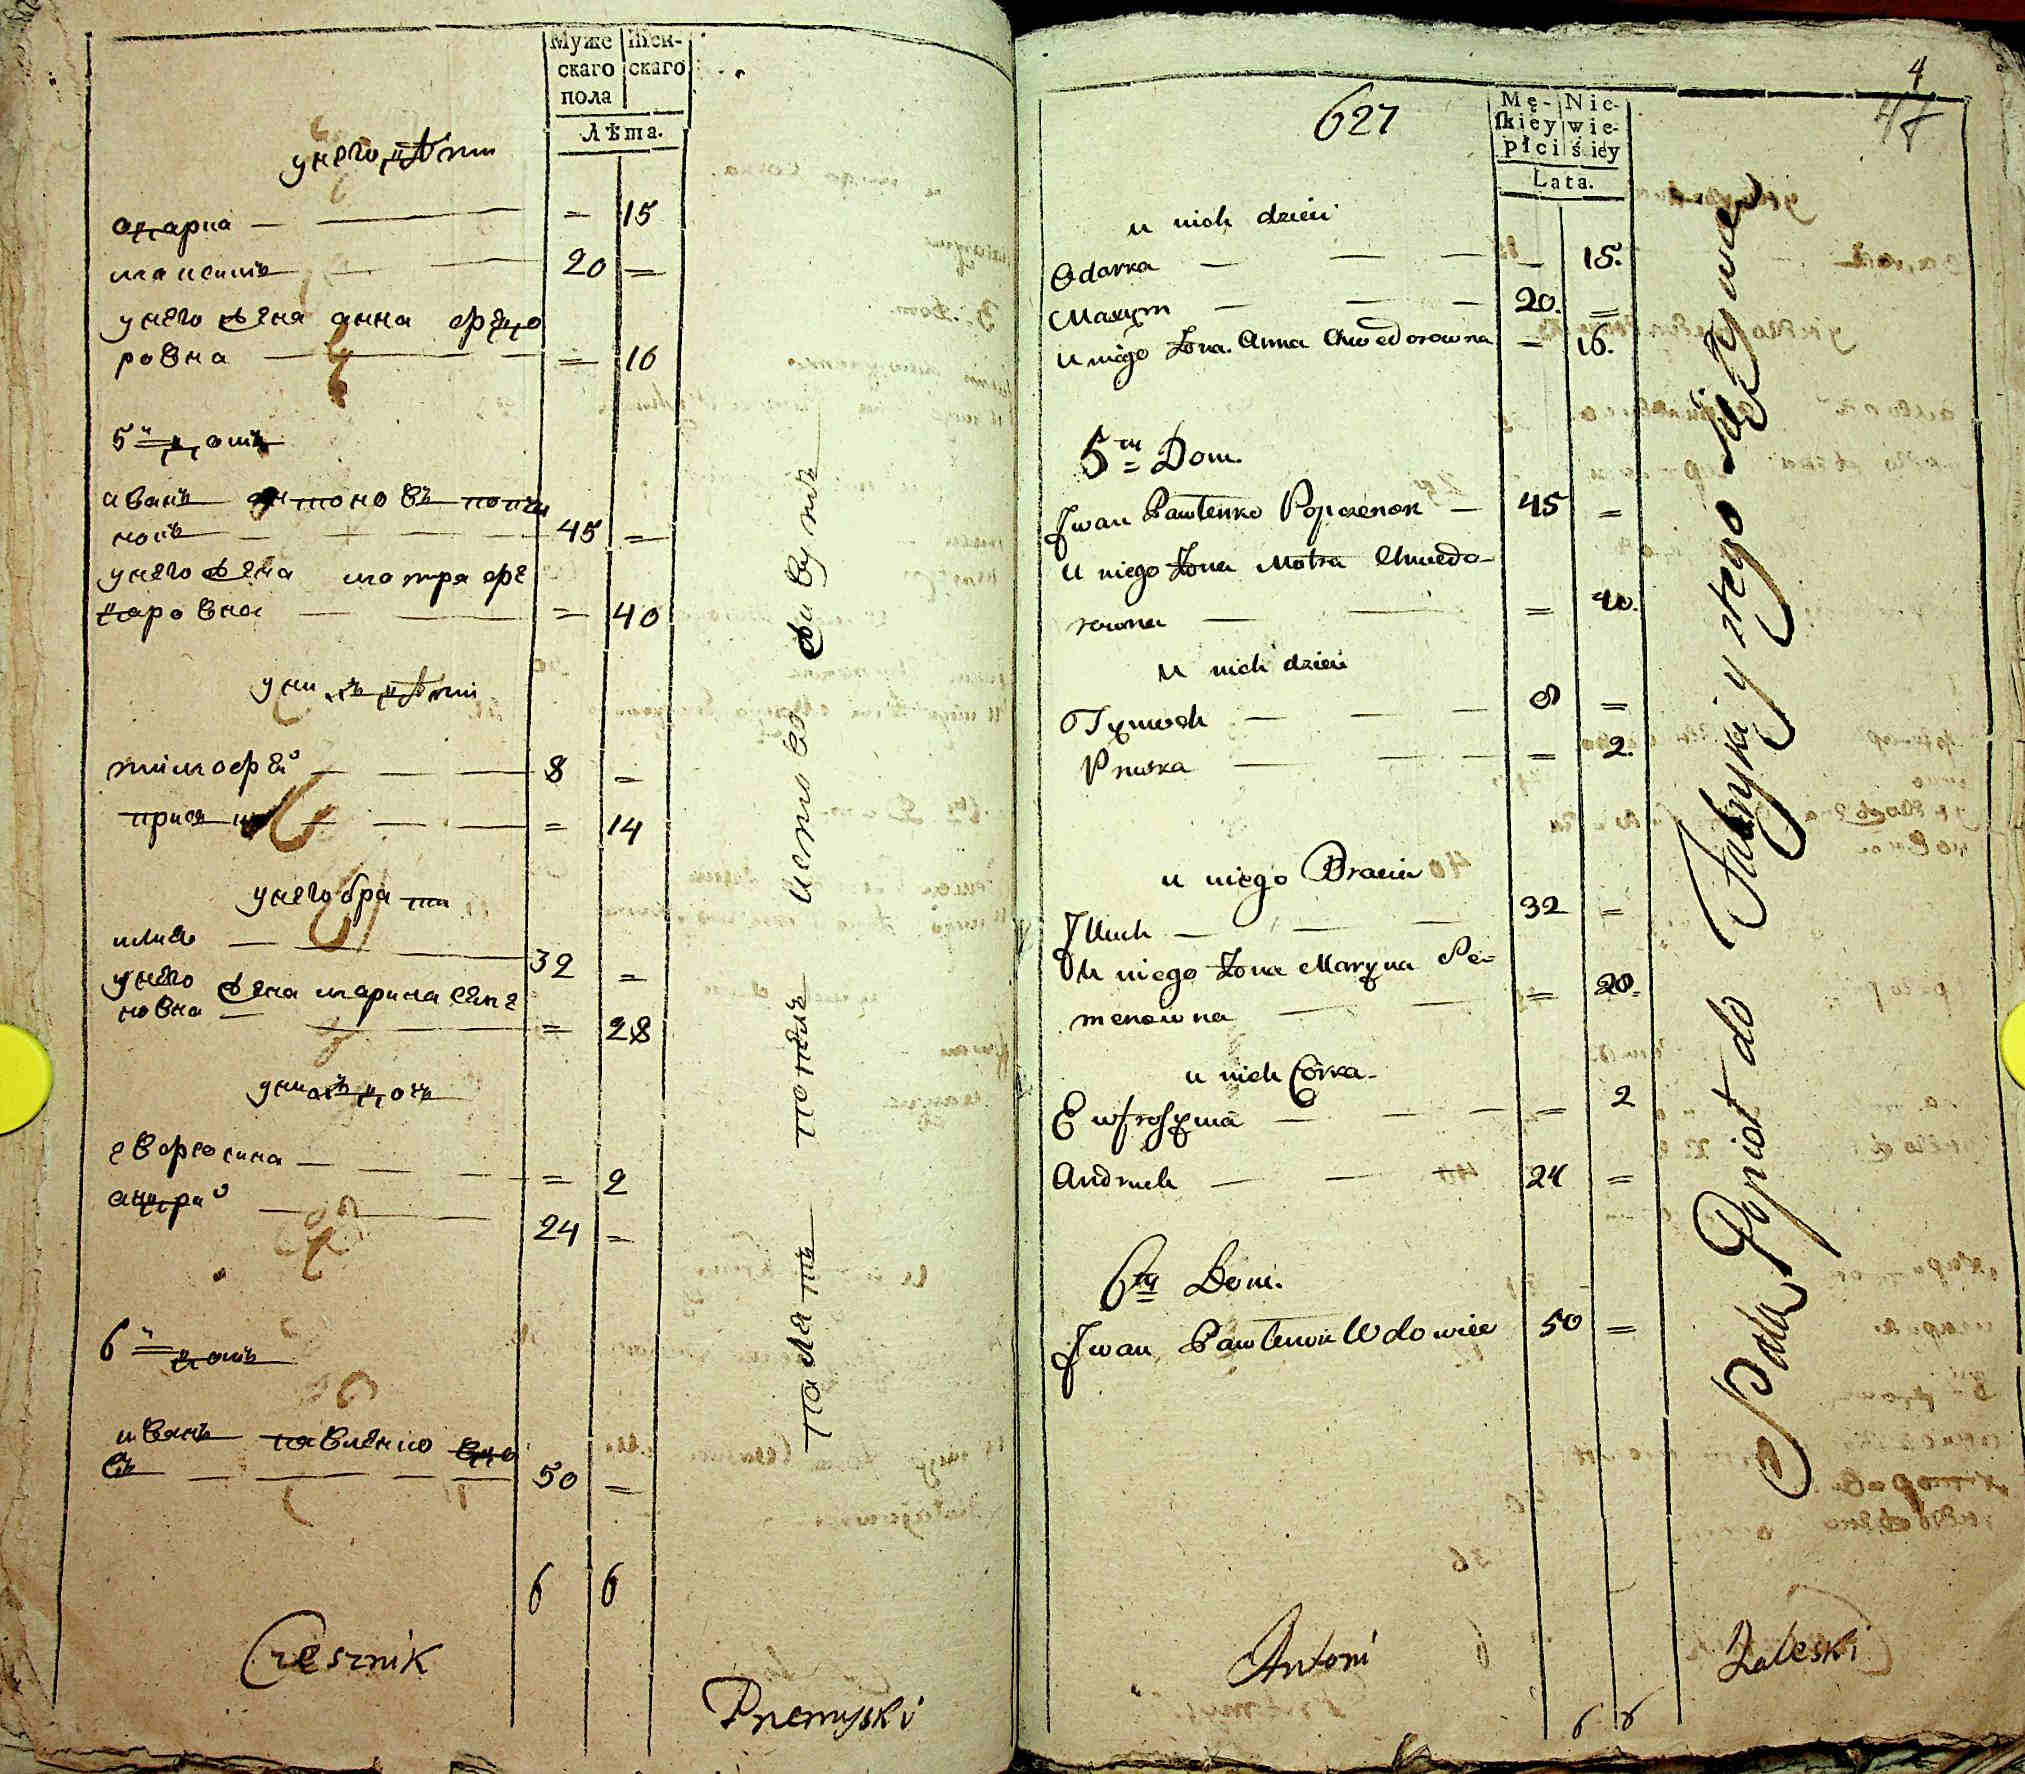 Муже скаго пола
Жен- скаго
Лѣта.
у него дѣти
одарка — = 15
максимъ — 20 =
у него жена анна федо
ровна — = 16
5й домъ
иванъ антоновъ попчи
нокъ — 45 =
у него жена мотря фе
даровна — = 40
у нихъ дѣти
тимофей — 8 =
приська — = 14
у него брати
илия — 32 =
у него жена марина семе
новна — = 28
у нихъ дочь
евфросина — = 2
андрий — 24 =
6й домъ
иванъ павленко вдо
въ — 50 =
6 6
Czesznik
Przemyski
4
47
627
Mę- skiey płci
Nie- wie- ściey
Lata.
u nich dzieci
Odarka — — 15.
Maxym — 20. =
u niego Żona Anna Chwedorowna — 16.
5ty Dom.
Jwan Pawlenko Popczenok — 45 =
u niego Żona Motra Chwedo-
rowna — = 40.
u nich dzieci
Tymoch — 8 =
Pryska — = 2.
u niego Bracia
Jlluch — 32 =
U niego Żona Maryna Se-
menowna — = 28.
u nich Córka
Ewfrosyma — = 2
Andruch — 24 =
6ty Dom.
Jwan Pawlenko Wdowiec 50 =
Antoni
Zaleski
6 6